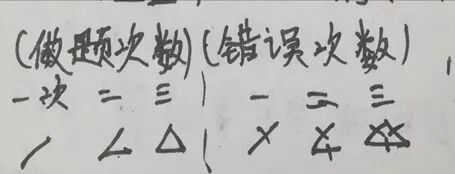 (做题次数)(错误次数)
一次 二 三 | 一 二 三